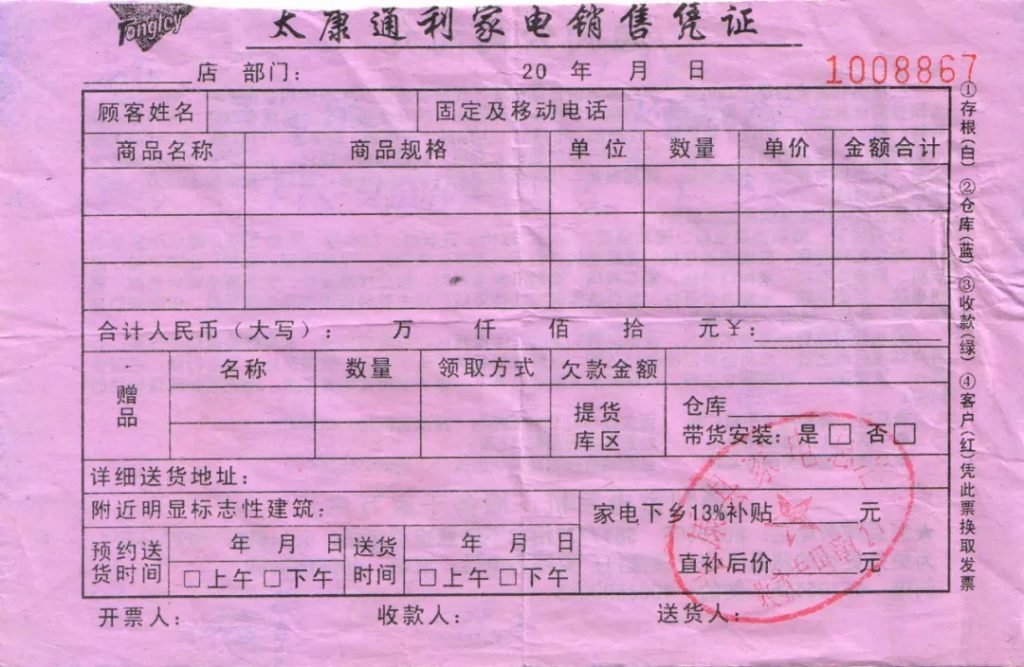 TongLcy
太康通利家电销售凭证
________店 部门: 20 年 月 日 1008867
顾客姓名 固定及移动电话
商品名称 商品规格 单位 数量 单价 金额合计
合计人民币(大写): 万 仟 佰 拾 元¥:________
赠品 名称 数量 领取方式 欠款金额
提货库区 仓库________
带货安装: 是□ 否□
详细送货地址:
附近明显标志性建筑:
家电下乡13%补贴______元
预约送货时间 年 月 日 □上午□下午
送货时间 年 月 日 □上午□下午
直补后价______元
开票人: 收款人: 送货人:
①存根(白) ②仓库(蓝) ③收款(绿) ④客户(红)凭此票换取发票